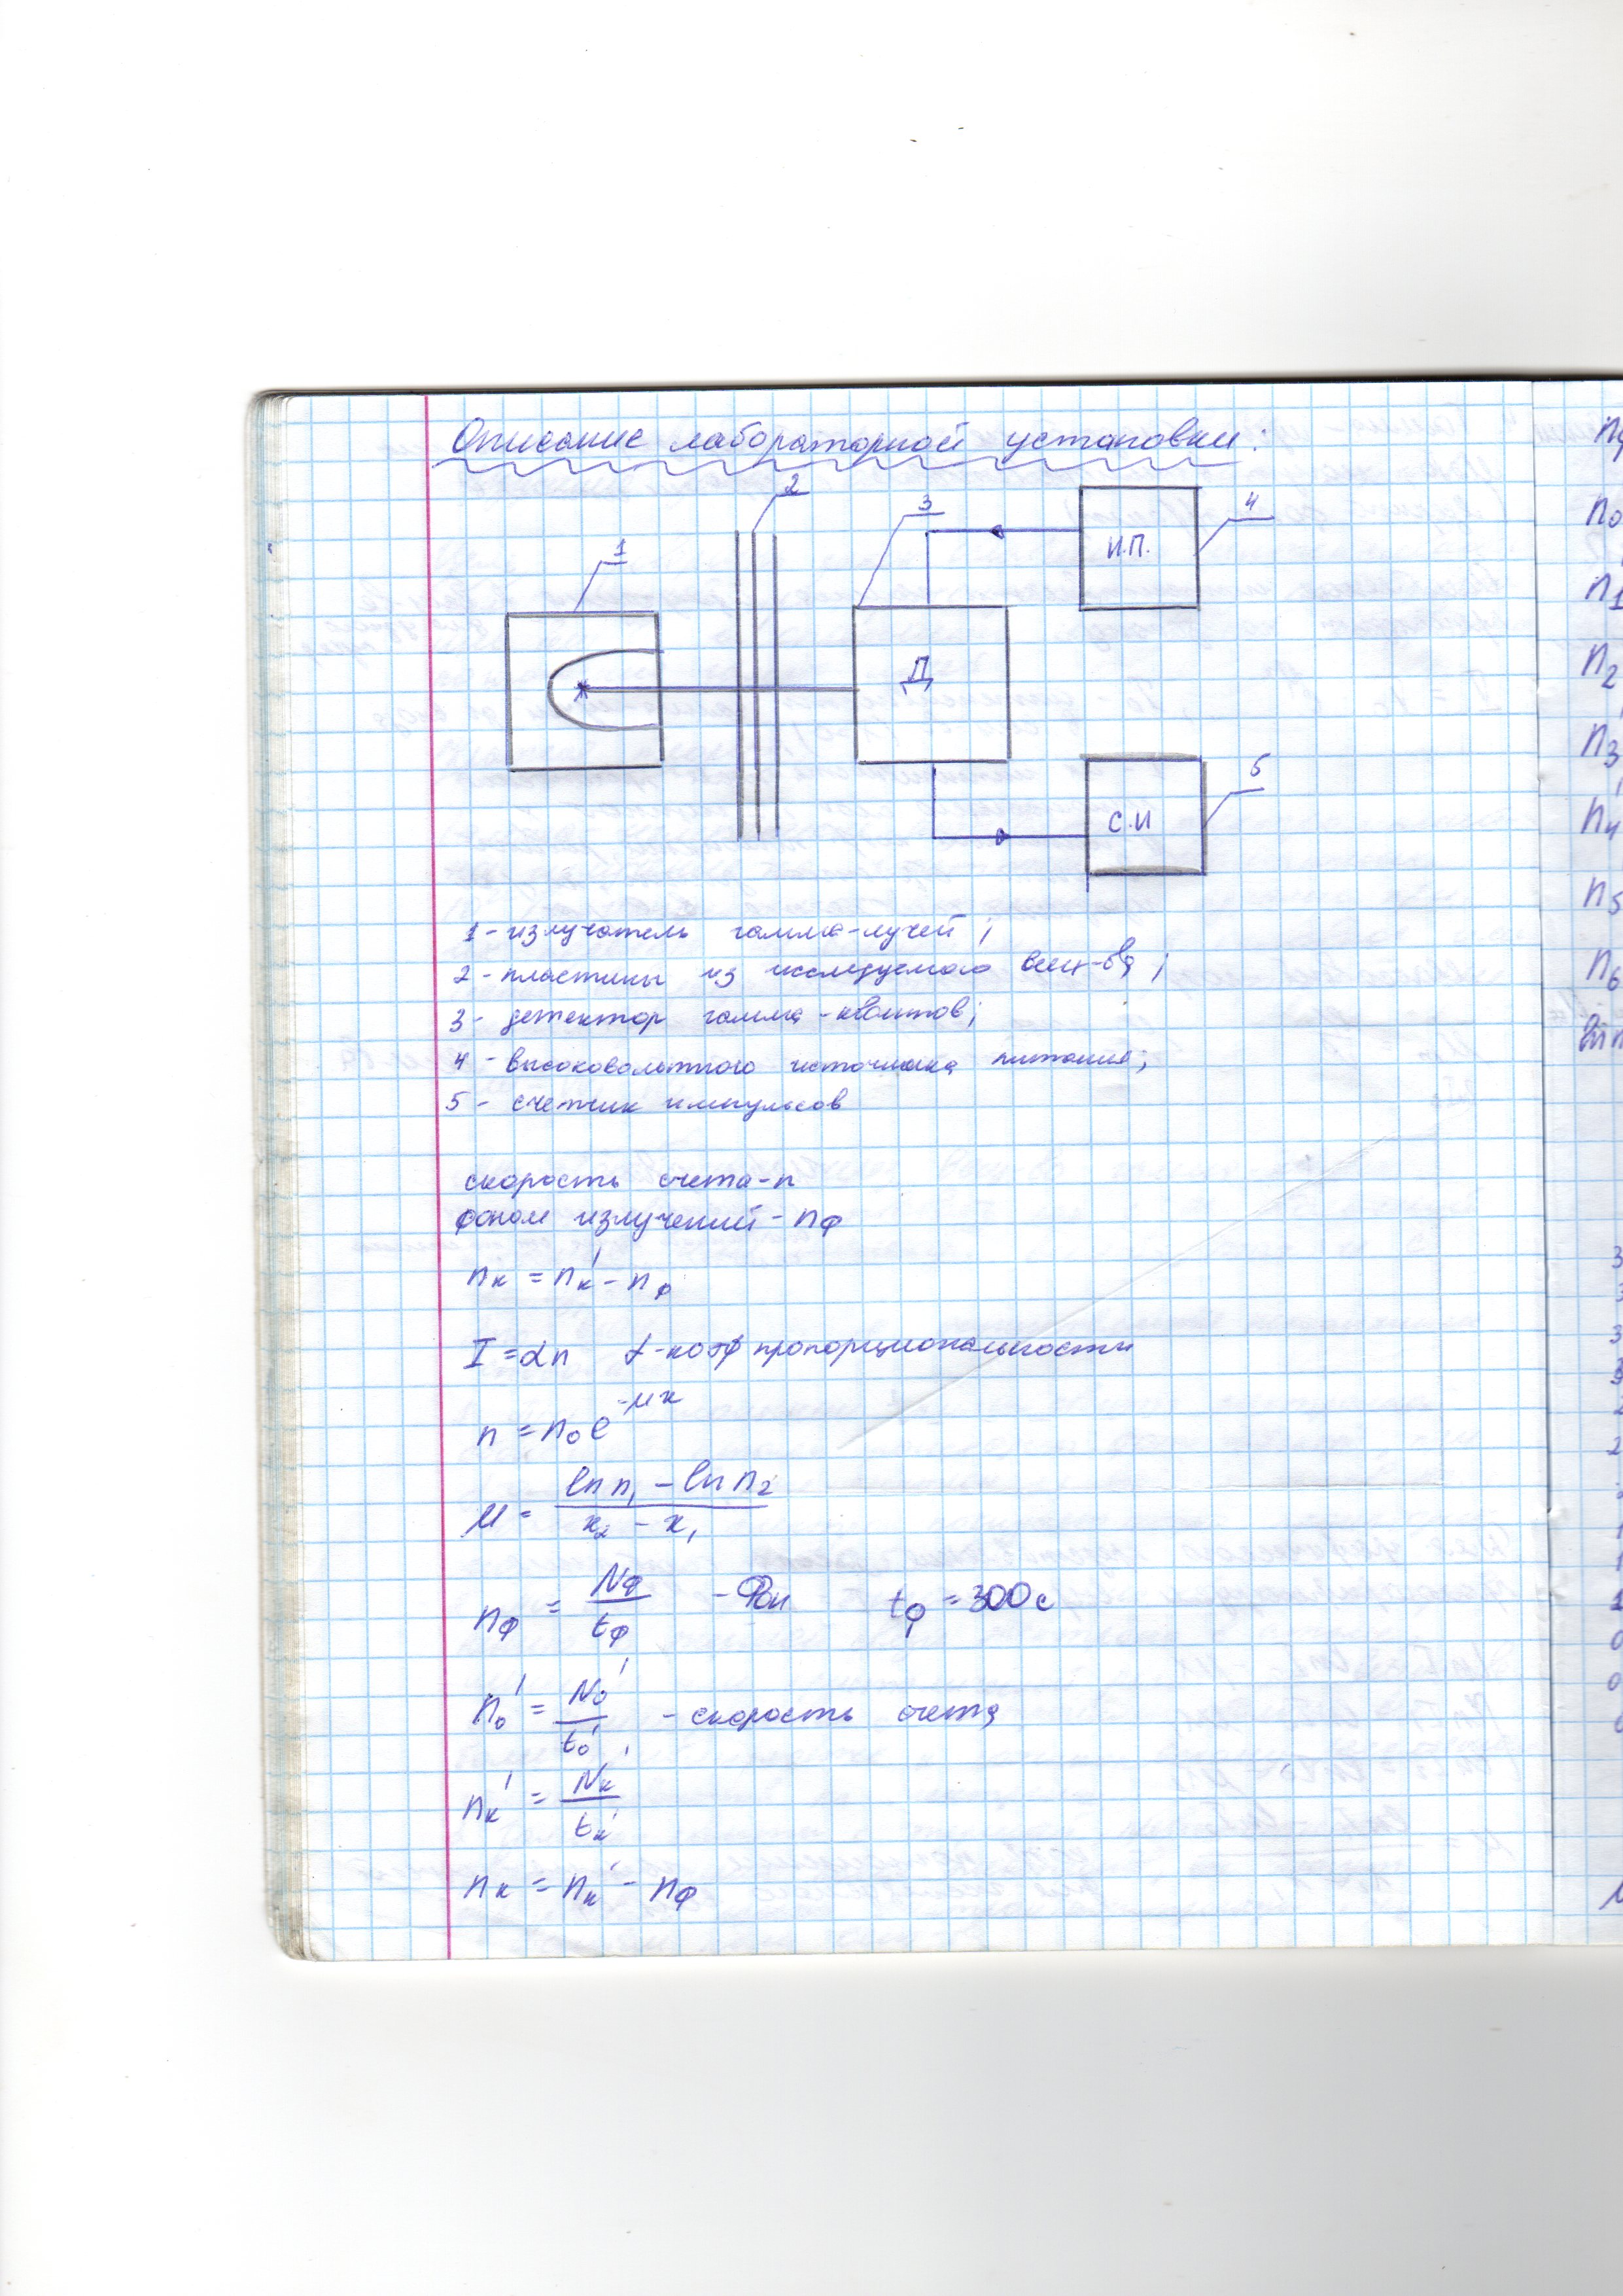 Описание лабораторной установки:
1
2
3
4
И.П.
Д
5
С.И
1 - излучатель гамма-лучей;
2 - пластины из исследуемого вещ-ва;
3 - детектор гамма-квантов;
4 - высоковольтного источника питания;
5 - счетчик импульсов
скорость счета - n
фоном излучений - nф
nк = nк' - nф
I = αn α - коэф пропорциональности
n = n₀e^-μx
μ = (ln n₁ - ln n₂) / (x₂ - x₁)
nф = Nф / tф - Фон tф = 300с
n₀' = N₀' / t₀' - скорость счета
nк' = Nк' / tк'
nк = nк' - nф
n₀
n₁
n₂
n₃
n₄
n₅
n₆